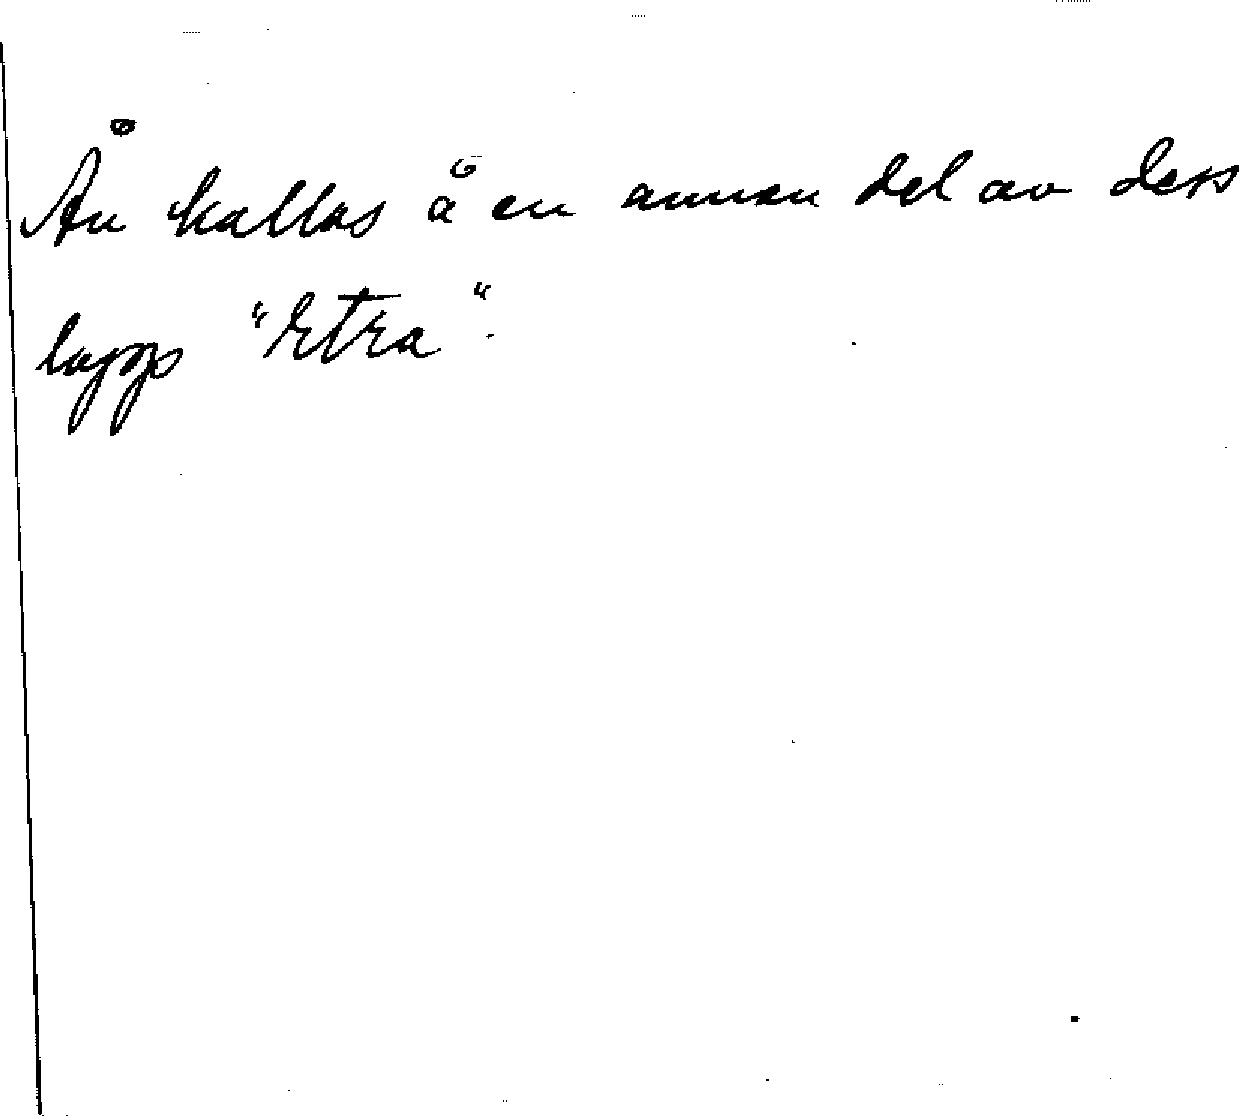 Ån kallas å en annan del av dess
lopp "Etra".